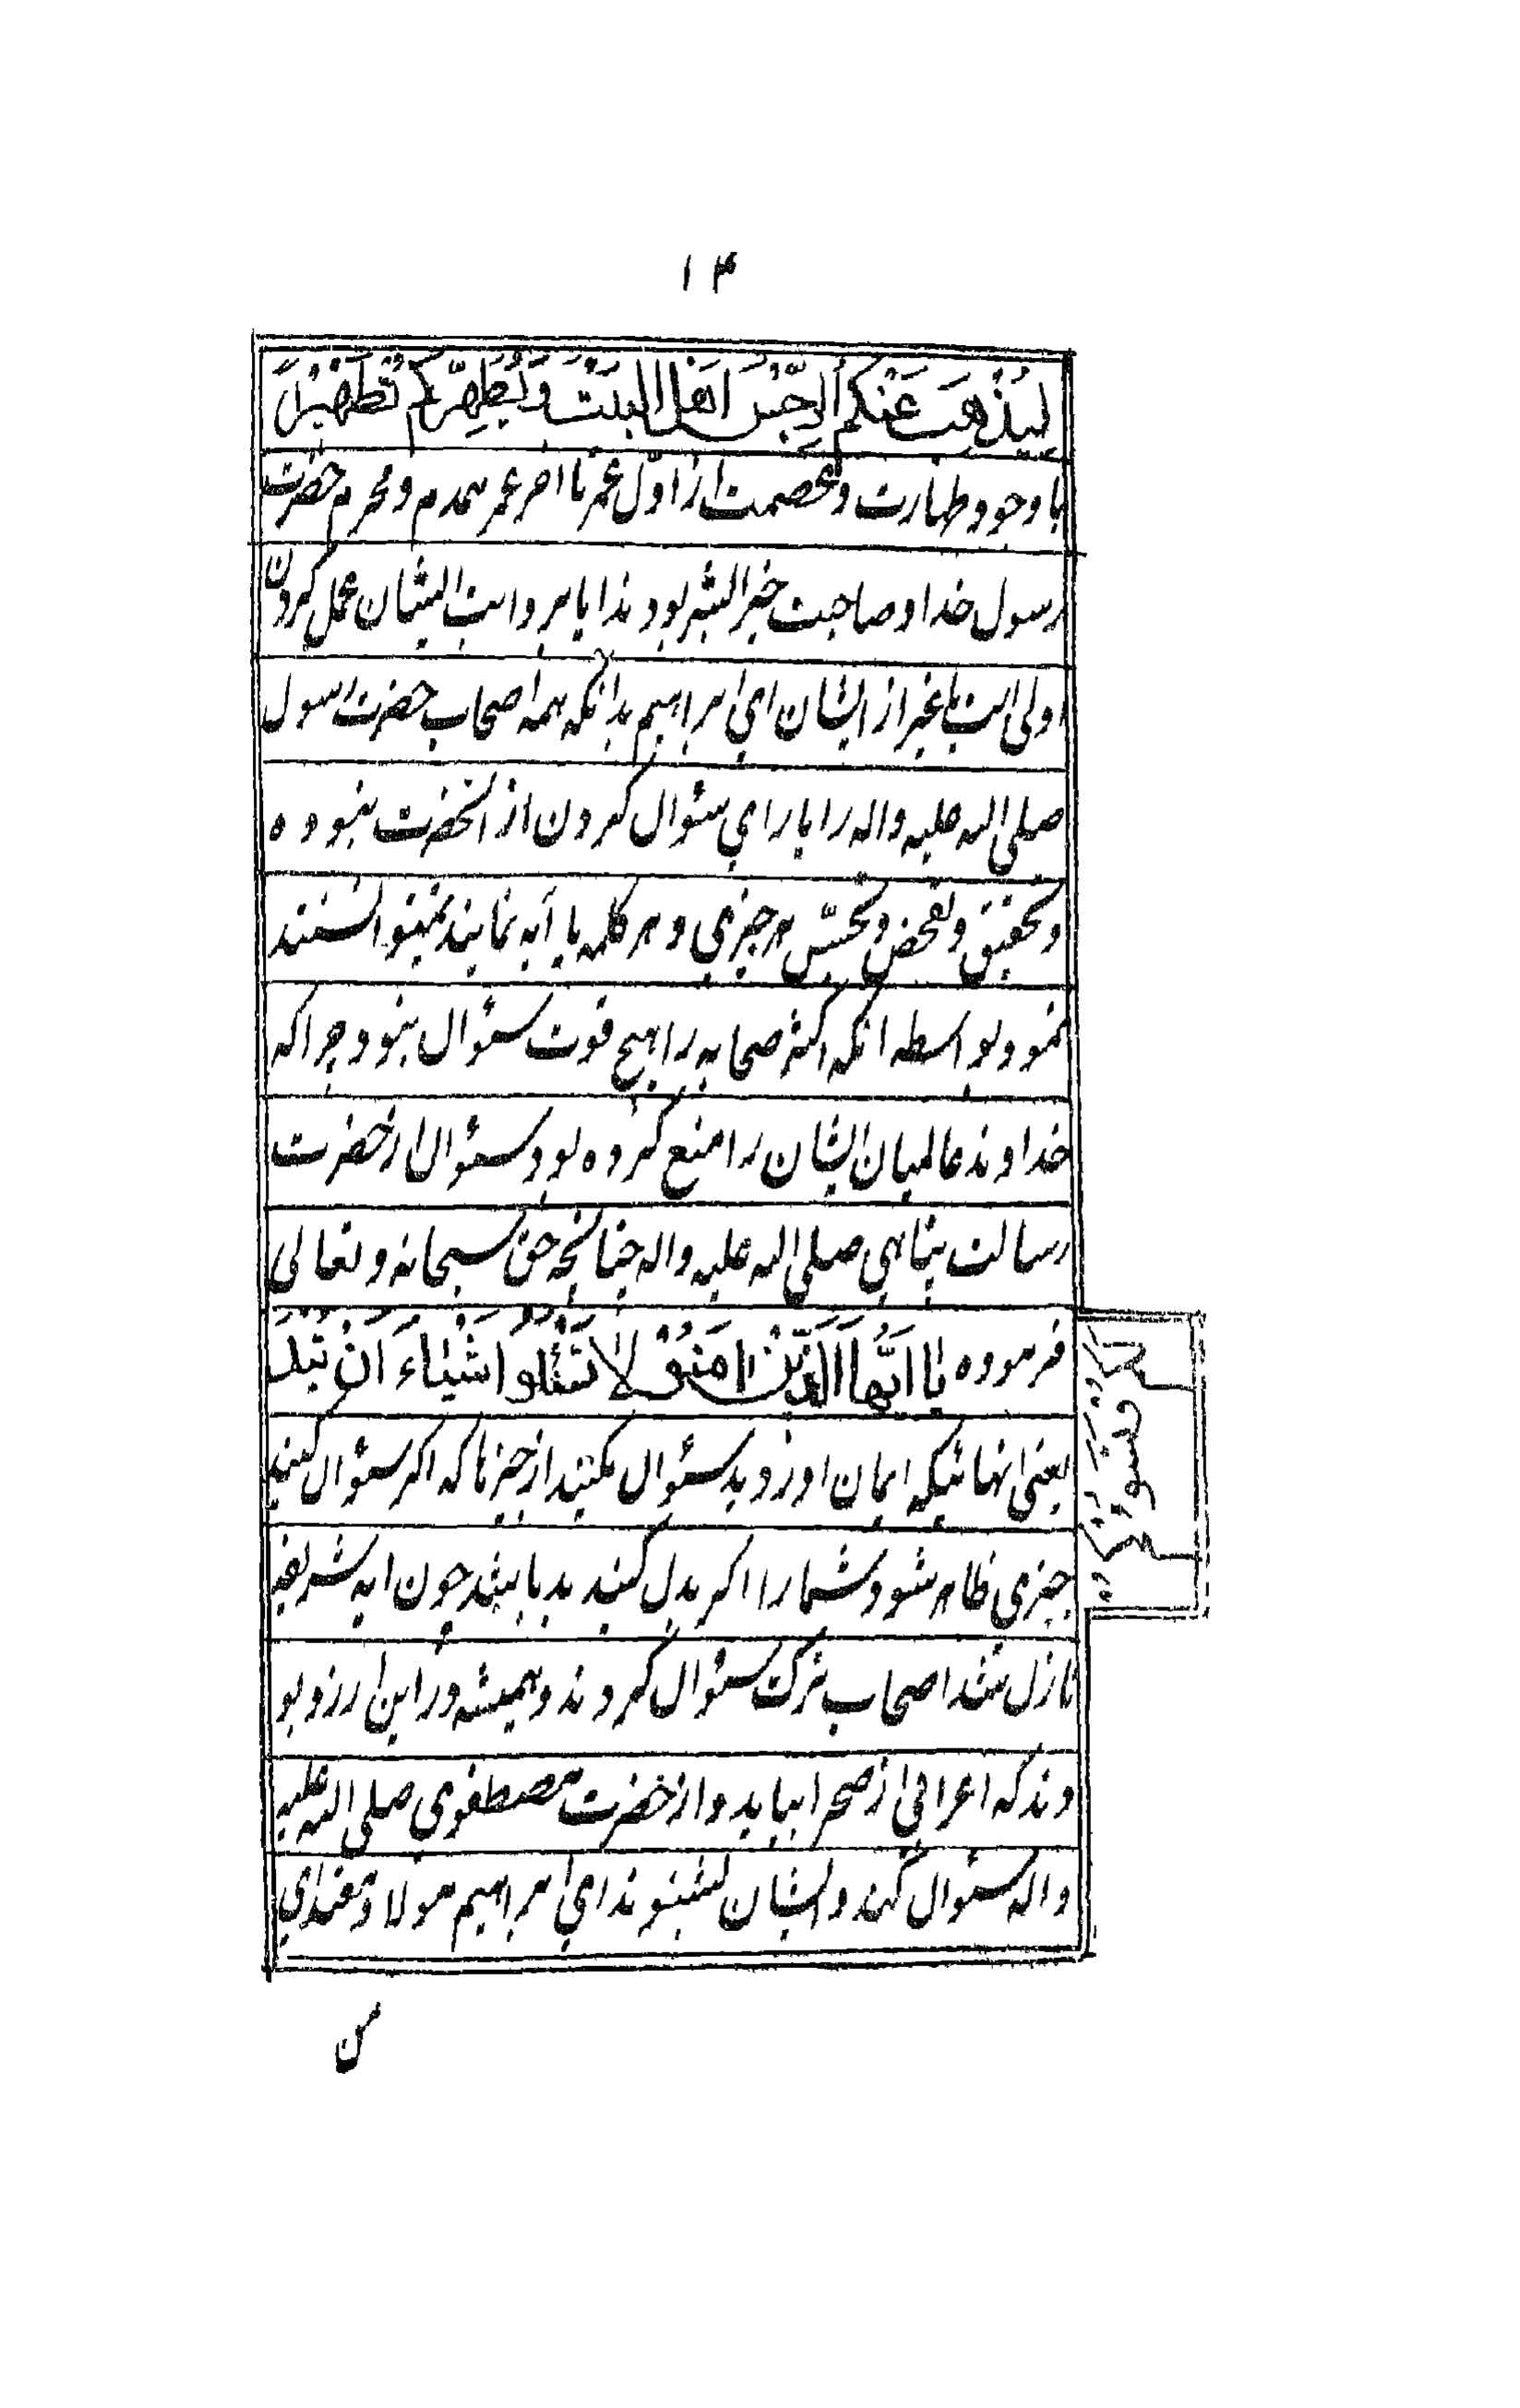 ۱۴
لِيُذْهِبَ عَنْكُمُ الرِّجْسَ اَهْلَ الْبَيْتِ وَيُطَهِّرَكُمْ تَطْهِيْراً
با وجود طهارت و عصمت از اوّل عمر تا اخر عمر همدم و محرم حضرت
رسول خدا و صاحبت خیر البشر بودند ایا بروایت ایشان عمل کردن
اولی است یا غیر از ایشان ای ابراهیم بدانکه همه اصحاب حضرت رسول
صلی الله علیه واله را یارای سئوال کردن از انحضرت نبوده
و تحقیق و تفحض و تجسّس هر چیزی و هر کلمه یا آیه نمایند نمیتوانستند
نمود بواسطه انکه اکثر صحابه را هیچ قوت سئوال نبود چراکه
خداوند عالمیان ایشان را منع کرده بود سئوال از حضرت
رسالت پناهی صلی الله علیه واله چنانچه حق سبحانه و تعالی
فرموده یا اَیُّهَا الَّذِیْنَ امَنُوْا لا تَسْئَلُوا اَشْیٰاءَ اَنْ تُبْدَ
لَكُمْ تَسُؤْكُمْ
یعنی انهائیکه ایمان اوردید سئوال مکنید از چیزها که اکر سئوال کنید
چیزی ظاهر شود شما را اکر بدل کنید بد باشد چون ایه شریفه
نازل شد اصحاب ترک سئوال کردند و همیشه در این ارزو بو
دند که اعرابی از صحرا بیاید و از حضرت مصطفوی صلی الله علیه
واله سئوال کند و ایشان بشنوند ای ابراهیم مولا و مقتدای
من